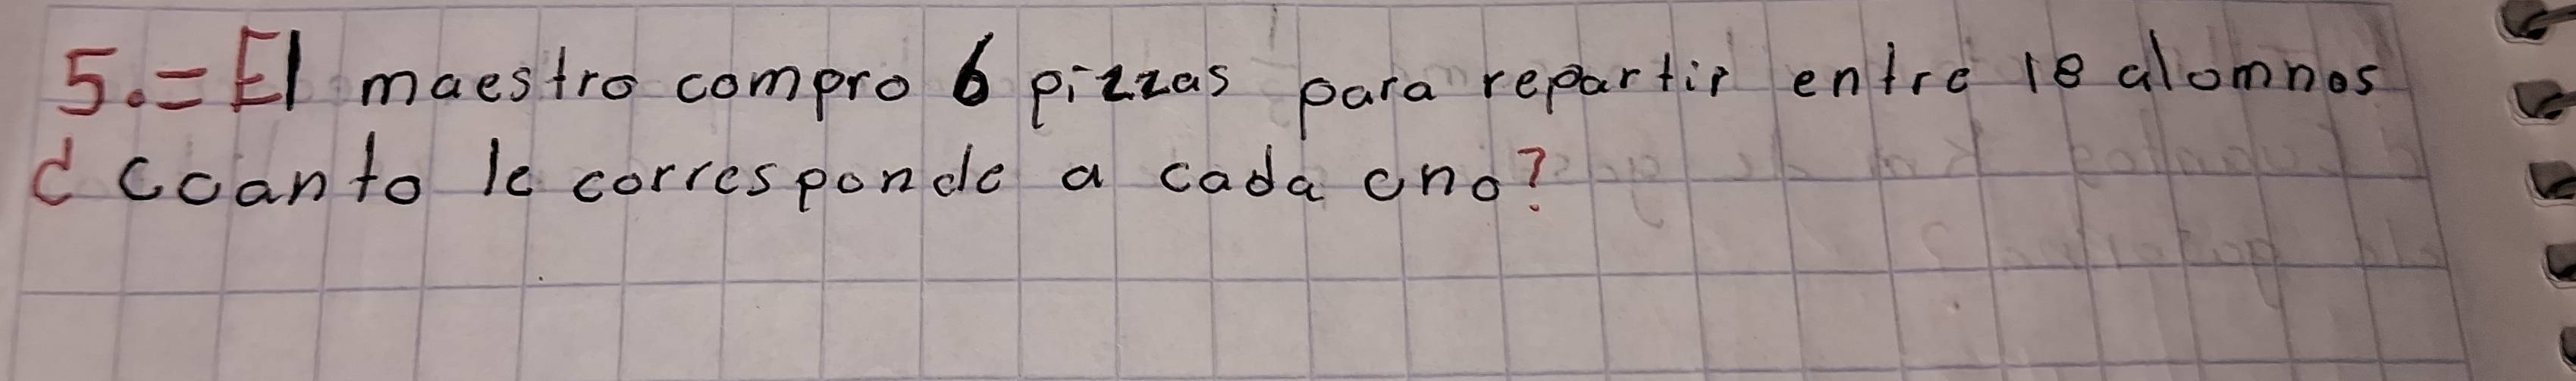 5.= El maestro compro 6 pizzas para repartir entre 18 alomnos
¿ Ccanto le corresponde a cada uno?